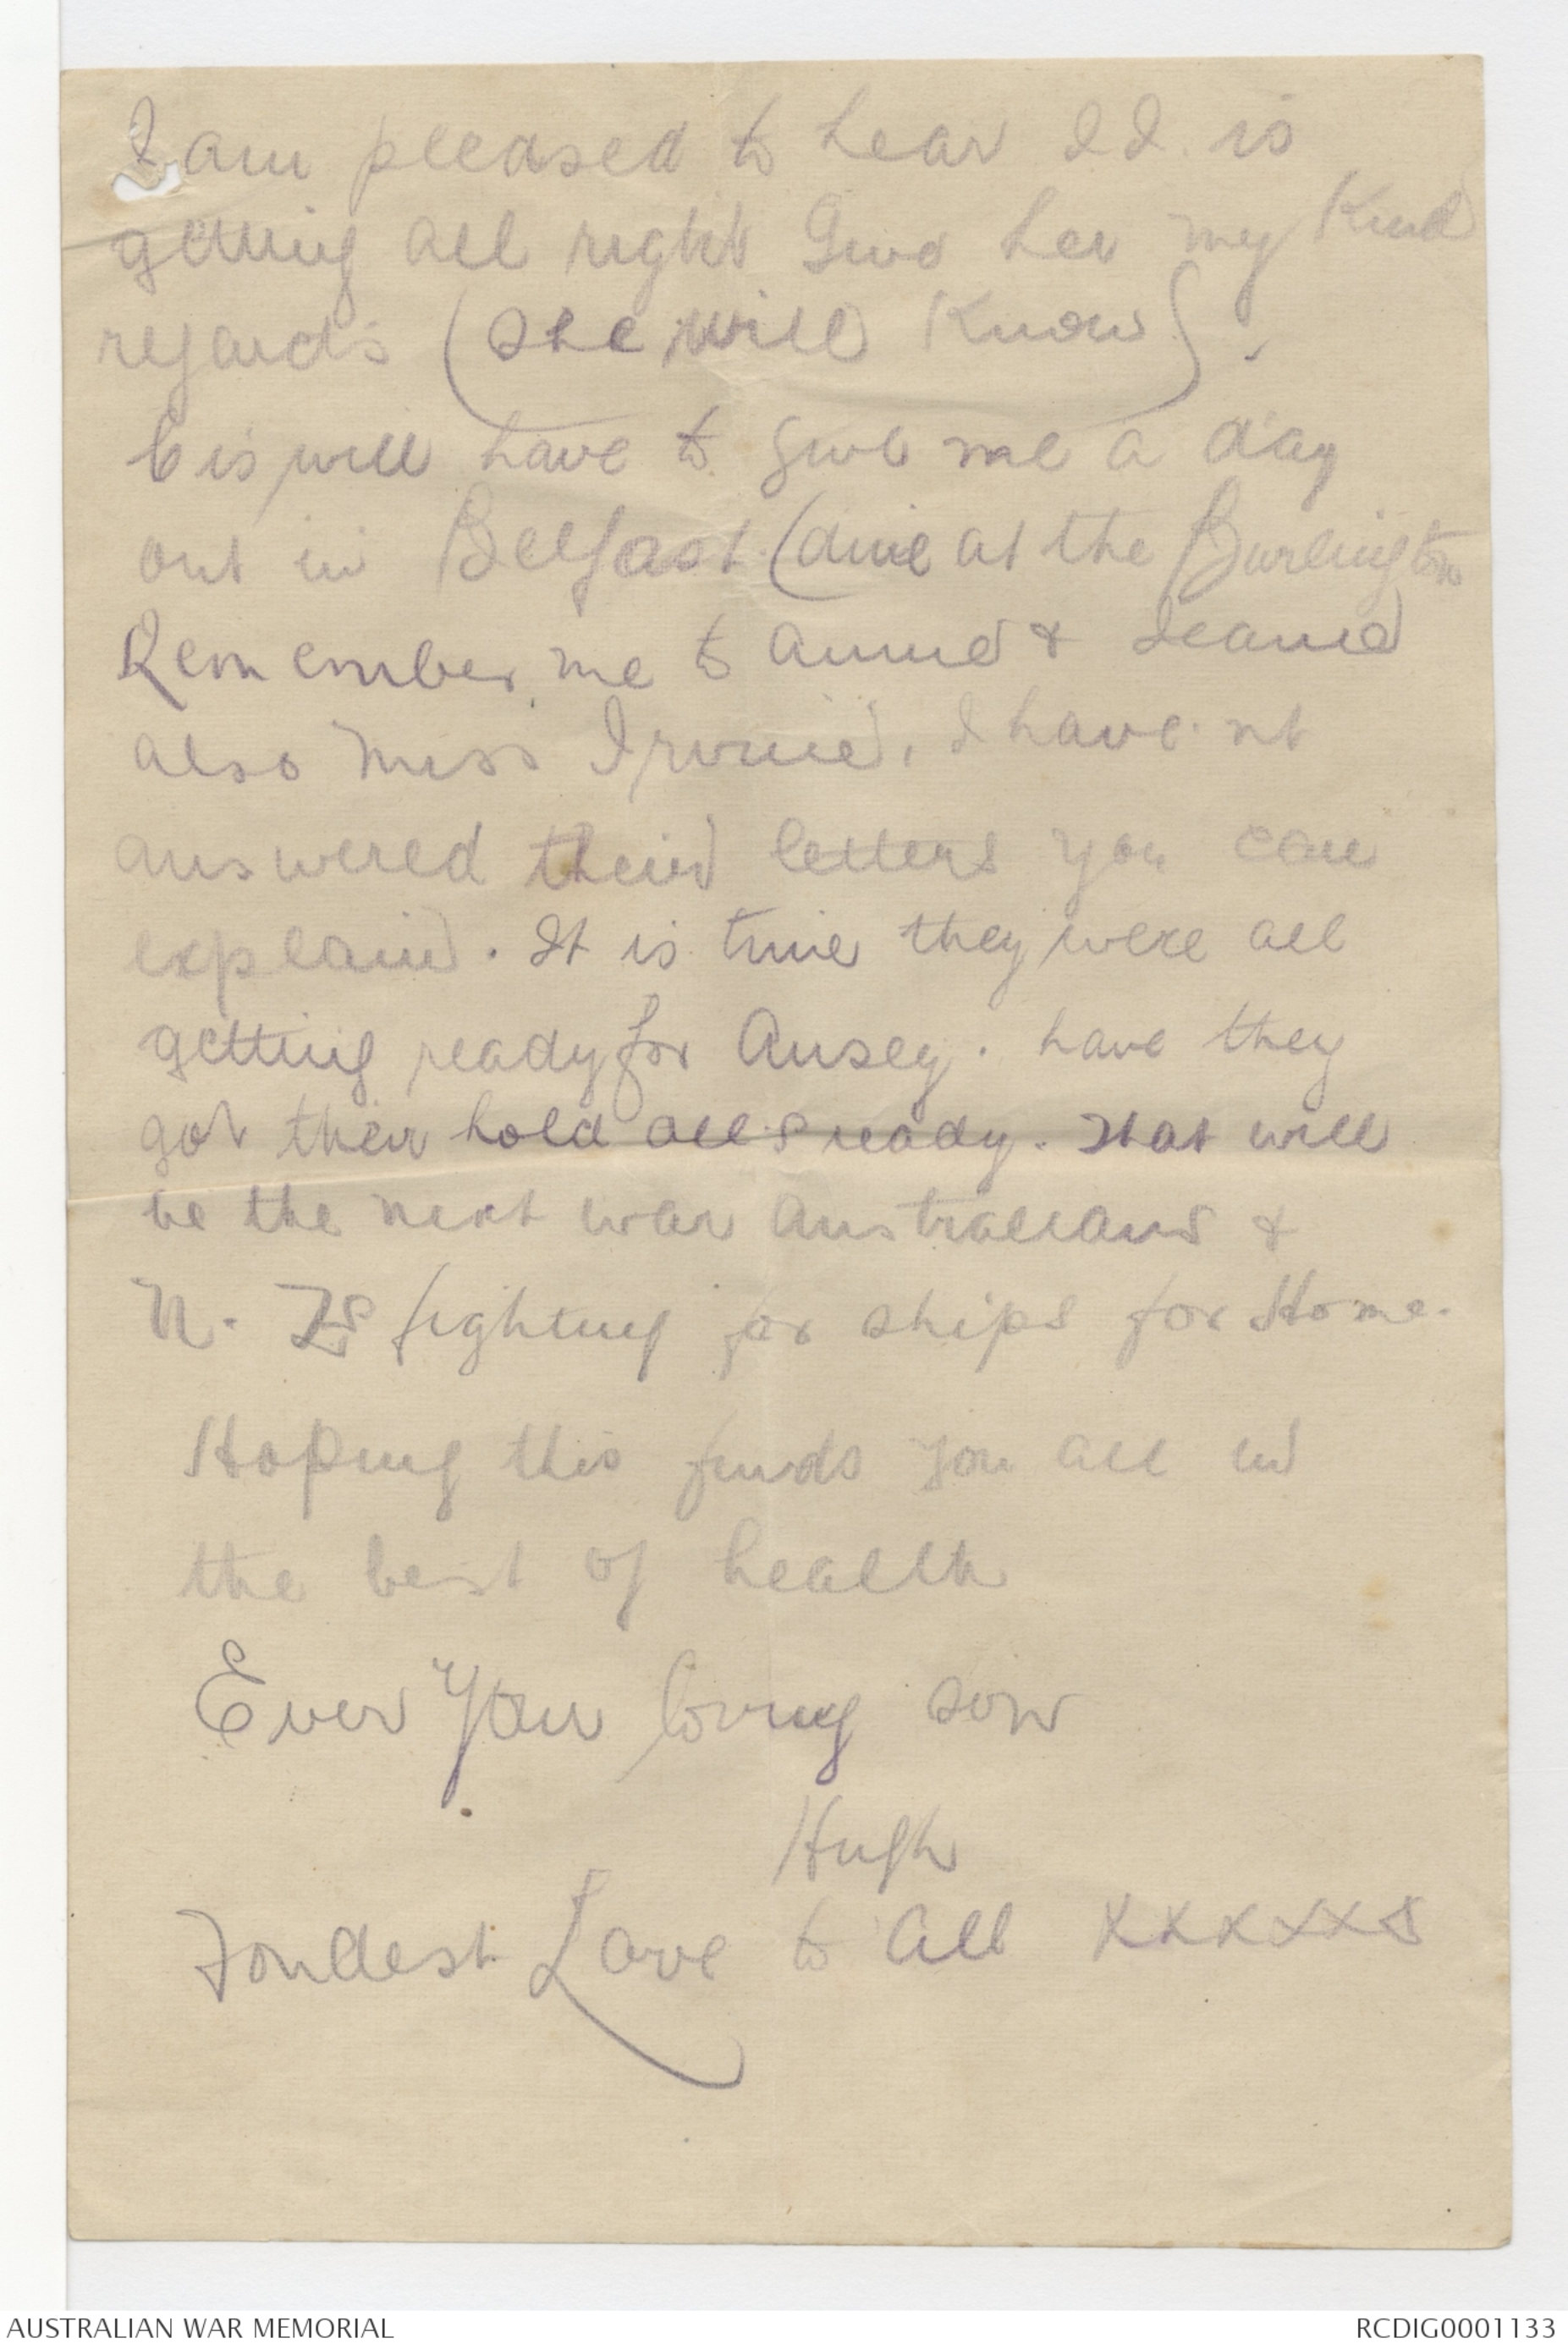 I am pleased to hear I.I. is
getting all right Give her my Kind
regards (she will Know).
Cis will have to give me a day
out in Belfast. (dine at the Burlington
Remember me to Annie & Jeanie
also Miss Irvine, I have nt
answered their letters you can
explain. It is time they were all
getting ready for Aussey. have they
got their hold alls ready. That will
be the next war Australians &
N. Zs fighting for ships for Home.
Hoping this finds you all in
the best of health
Ever Your loving son
Hugh
Fondest Love to All xxxxxx
AUSTRALIAN WAR MEMORIAL
RCDIG0001133